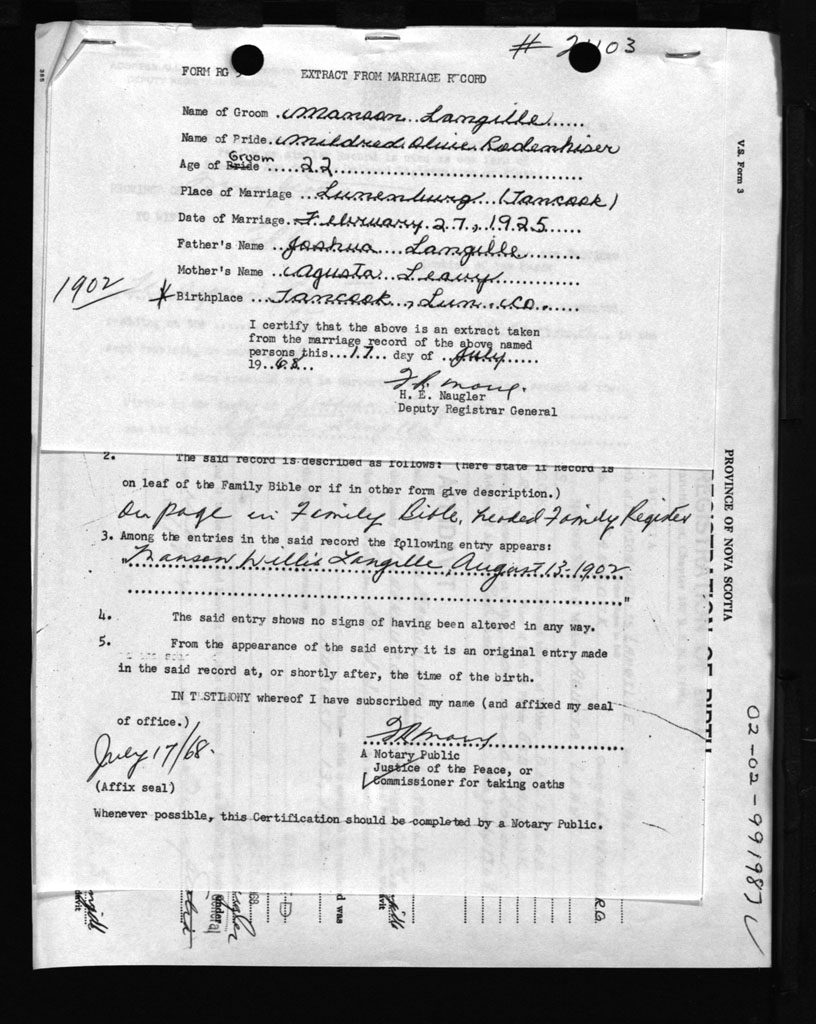 FORM RG
EXTRACT FROM MARRIAGE RECORD
Name of Groom . Manson Langille......
Name of Pride. Mildred Olive Rodenhiser
Groom
Age of Bride .....22..............................
Place of Marriage ...Lunenburg (Tancook)
Date of Marriage. February 27, 1925......
Father's Name ..Joshua Langille........
Mother's Name ..Agusta Leavy............
1902
Birthplace ...Tancook, Lun. Co...
I certify that the above is an extract taken
from the marriage record of the above named
persons this...17... day of ..July.....
19..68...
H. E. Naugler
Deputy Registrar General
2. The said record is described as follows: (Here state if Record is
on leaf of the Family Bible or if in other form give description.)
On page in Family Bible, headed Family Register
3. Among the entries in the said record the following entry appears:
"Manson Willis Langille, August 13-1902
"
4. The said entry shows no signs of having been altered in any way.
5. From the appearance of the said entry it is an original entry made
in the said record at, or shortly after, the time of the birth.
IN TESTIMONY whereof I have subscribed my name (and affixed my seal
of office.)
July 17/68.
A Notary Public
Justice of the Peace, or
Commissioner for taking oaths
(Affix seal)
Whenever possible, this Certification should be completed by a Notary Public.
V.S. Form 3
PROVINCE OF NOVA SCOTIA
REGISTRATION OF BIRTH
02-02-991987
R.G.
d was